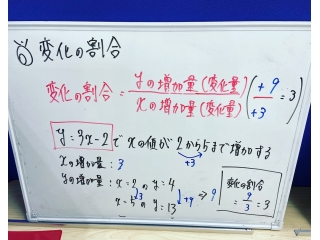 変化の割合
変化の割合 = yの増加量(変化量) / xの増加量(変化量) ( +9 / +3 = 3 )
y=3x-2 で xの値が2から5まで増加する
+3
xの増加量:3
yの増加量: x=2のy=4
↓3 ↓+9 ⇒ 9
x=5のy=13
変化の割合
= 9/3 = 3